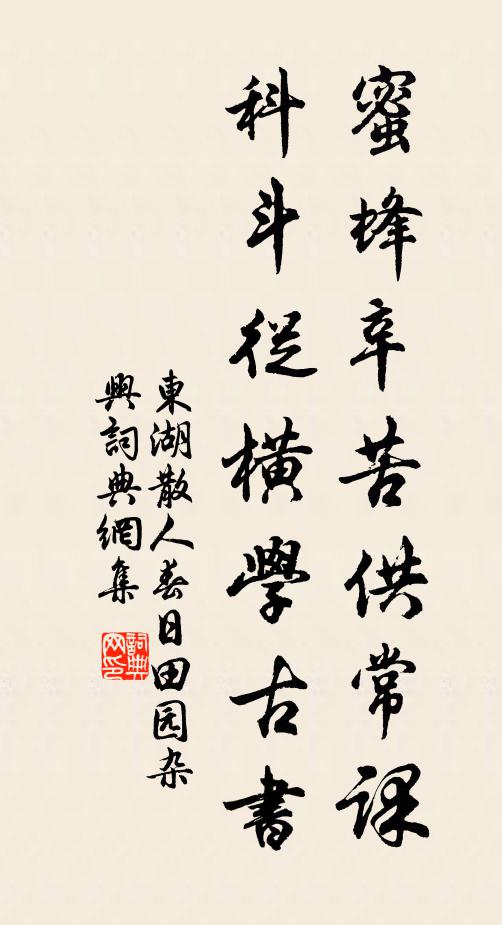 蜜蜂辛苦供常課
科斗從橫學古書
東湖散人春日田园杂
興詞典網集
詞典网印